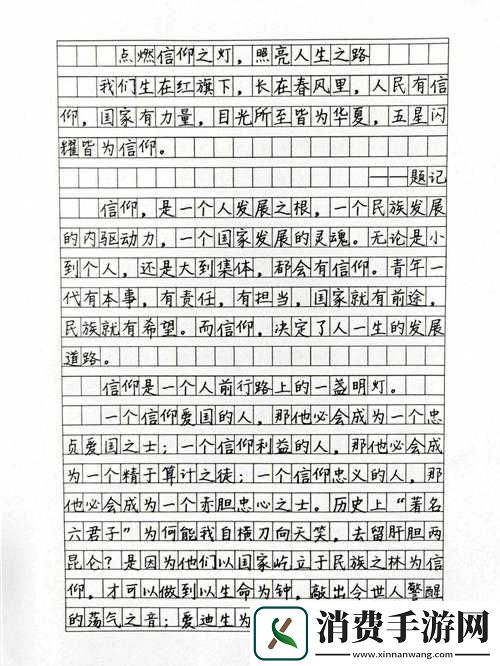 点燃信仰之灯，照亮人生之路
我们生在红旗下，长在春风里，人民有信
仰，国家有力量，目光所至皆为华夏，五星闪
耀皆为信仰。
——题记
信仰，是一个人发展之根，一个民族发展
的内驱动力，一个国家发展的灵魂。无论是小
到个人，还是大到集体，都会有信仰。青年一
代有本事，有责任，有担当，国家就有前途，
民族就有希望。而信仰，决定了人一生的发展
道路。
信仰是一个人前行路上的一盏明灯。
一个信仰爱国的人，那他必会成为一个忠
贞爱国之士；一个信仰利益的人，那他必会成
为一个精于算计之徒；一个信仰忠义的人，那
他必会成为一个赤胆忠心之士。历史上“著名
六君子”为何能我自横刀向天笑，去留肝胆两
昆仑？是因为他们以国家屹立于民族之林为信
仰，才可以做到以生命为钟，敲出令世人警醒
的荡气之音；爱迪生为
消费手游网
www.xinnanwang.com